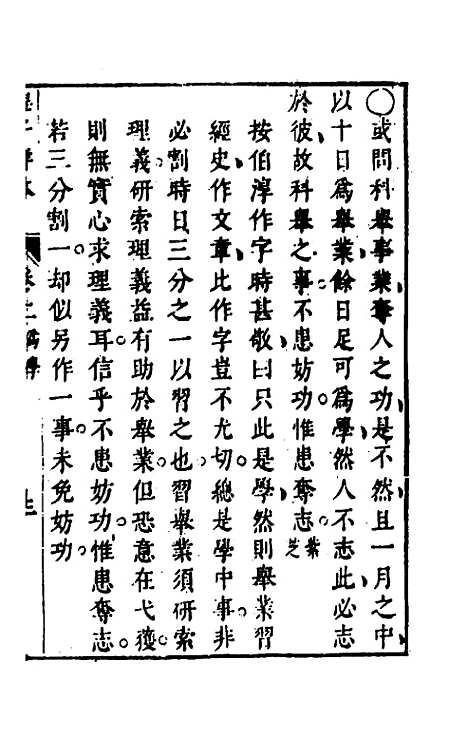 〇或問科舉事業奪人之功是不然且一月之中
以十日爲舉業餘日足可爲學然人不志此必志
於彼故科舉之事不患妨功惟患奪志
按伯淳作字時甚敬曰只此是學然則舉業習
經史作文章比作字豈不尤切總是學中事非
必割時日三分之一以習之也習舉業須研索
理義研索理義益有助於舉業但恐意在弋獲
則無實心求理義耳信乎不患妨功惟患奪志
若三分割一却似另作一事未免妨功